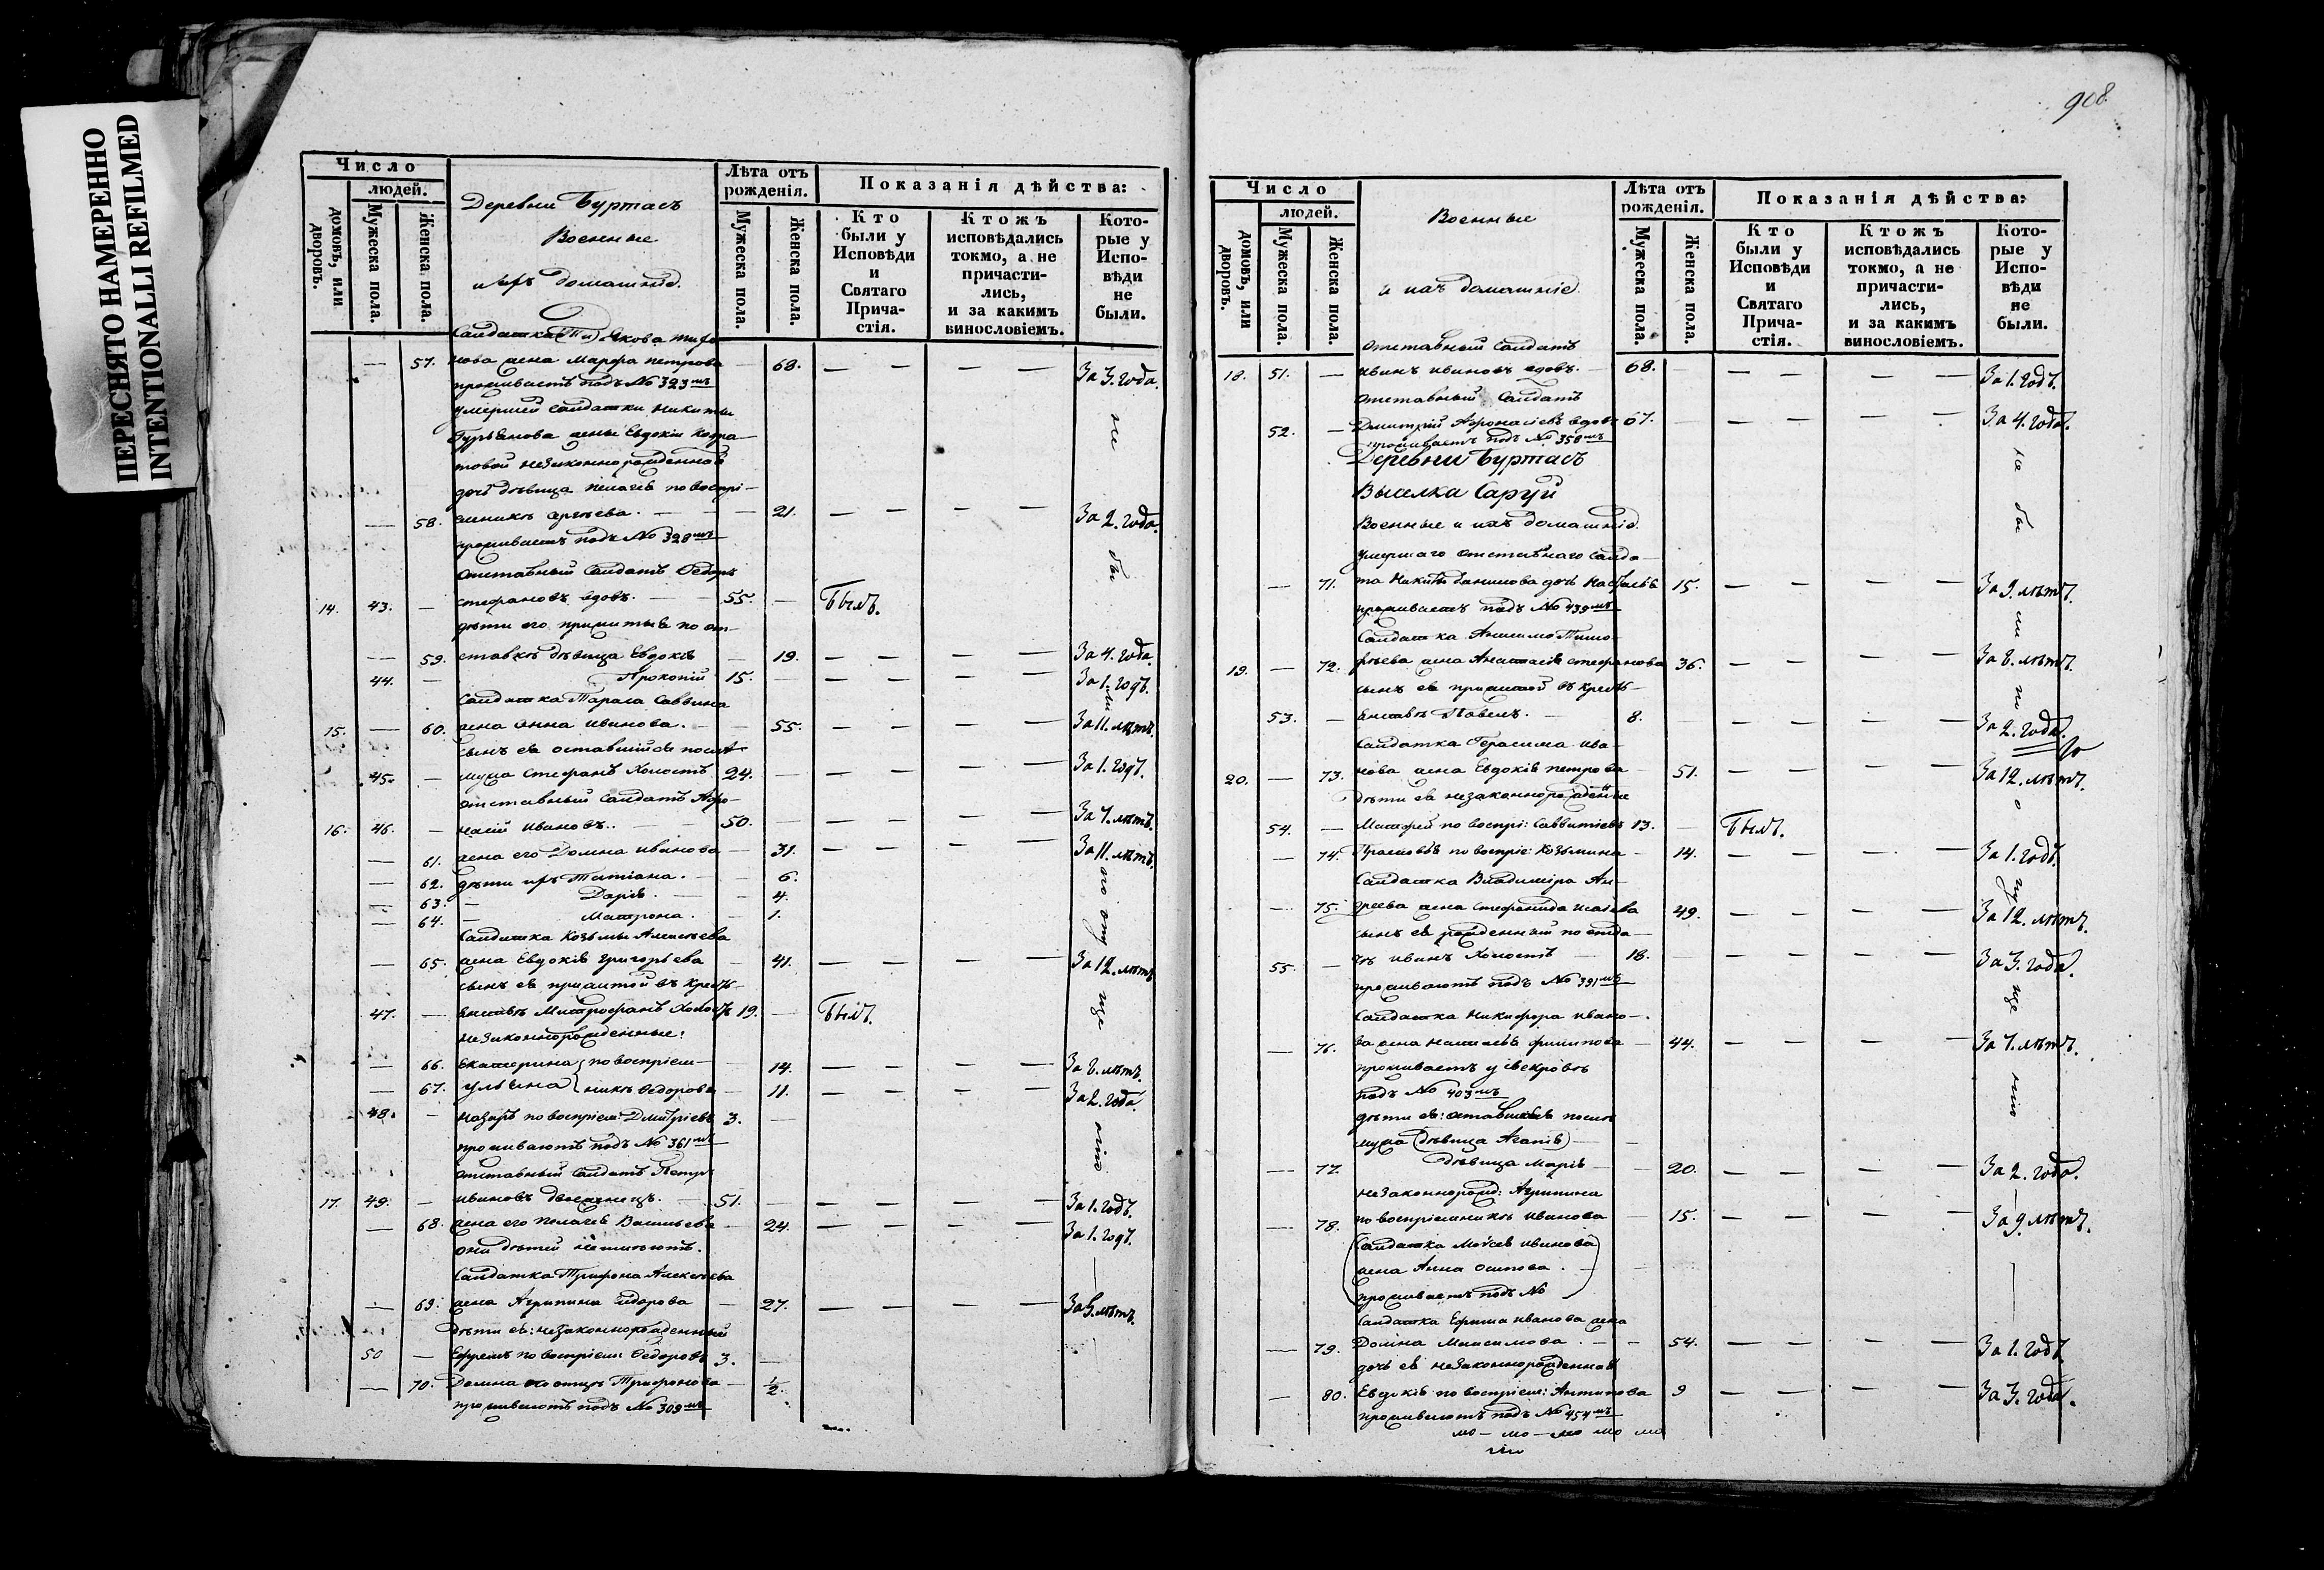 ПЕРЕСНЯТО НАМЕРЕННО
INTENTIONALLI REFILMED
Число
людей.
домовъ, или дворовъ.
Мужеска пола.
Женска пола.
Деревни Буртасъ
Военные
и ихъ домашніе.
Лѣта отъ рожденія.
Мужеска пола.
Женска пола.
Показанія дѣйства:
Кто были у Исповѣди и Святаго Прича-стія.
Ктожъ исповѣдались токмо, а не причасти-лись, и за какимъ винословіемъ.
Кото-рые у Испо-вѣди не были.
Солдатка Якова
— 57. нова жена Марфа петрова — 68. — — — — За 3. года.
проживаетъ подъ № 323мъ
умершей солдатки Никиты
Гурьянова жены Евдокіи
незаконнорожденная
дочь дѣвица Пелагея по воспрі-
— 58. емнику — 21. — — — — За 2. года.
проживаетъ подъ № 328мъ
Отставный Солдатъ Ѳедоръ
14. 43. — стефановъ вдовъ. — 55. — Былъ.
дѣти его прижитыя по от-
— 59. ставкѣ дѣвица Евдокія — 19. — — — — За 4. года.
44. — Прокопій 15. — — — — За 1. годъ.
Солдатка Тараса Саввина
15. — 60. жена Анна иванова. — 55. — — — — За 11. лѣтъ.
сынъ ея оставшійся послѣ
45. — мужа Стефанъ Холостъ 24. — — — — За 1. годъ.
отставный солдатъ Афо-
16. 46. — насій Ивановъ. — 50. — — — — За 7. лѣтъ.
— 61. жена его Домна иванова — 31. — — — — За 11. лѣтъ.
— 62. дѣти ихъ Татіана. — 6.
— 63. — Дарія. — 4.
— 64. — Матрона. — 1.
Солдатка Козьмы Алексѣева
— 65. жена Евдокія григорьева — 41. — — — — За 12. лѣтъ
сынъ ея прижитой въ кресть-
47. — янствѣ Митрофанъ Холостъ 19. — Былъ.
незаконнорожденные:
— 66. Екатерина по воспріем- — 14. — — — — За 8. лѣтъ.
— 67. Ульяна нику Ѳедорова — 11. — — — — За 2. года.
48. — Назаръ по воспріем: Дмитріевъ 3. —
проживаютъ подъ № 361мъ
отставный солдатъ Петръ
17. 49. — ивановъ двоеженецъ. — 51. — — — — За 1. годъ.
— 68. жена его Пелагея Васильева — 24. — — — — За 1. годъ.
они дѣтей неимѣютъ.
Солдатка Трифона Алексѣева
— 69. жена Агрипина Сидорова — 27. — — — — За 5. лѣтъ.
дѣти ея: незаконнорожденный
50 — Ефремъ по воспріем: Ѳедоровъ 3. —
— 70. Домна по отцѣ Трифонова — 1/2.
проживаютъ подъ № 309мъ
908
Число
людей.
домовъ, или дворовъ.
Мужеска пола.
Женска пола.
Военные
и ихъ домашніе.
Лѣта отъ рожденія.
Мужеска пола.
Женска пола.
Показанія дѣйства:
Кто были у Исповѣди и Святаго Прича-стія.
Ктожъ исповѣдались токмо, а не причасти-лись, и за какимъ винословіемъ.
Кото-рые у Испо-вѣди не были.
отставный солдатъ
18. 51. — иванъ ивановъ вдовъ. — 68. — — — — За 1. годъ.
отставный Солдатъ
52. — Дмитрій Афонасіевъ вдовъ 67. — — — — За 4. года.
проживаетъ подъ № 358мъ
Деревни Буртасъ
Выселка Саруй
Военные и ихъ домашніе.
умершаго отставнаго солда-
— 71. та Никиты данилова дочь 15. — — — — За 9. лѣтъ.
проживаетъ подъ № 439мъ
Солдатка Анисима Тимо-
19. — 72. фѣева жена Анастасія стефанова 36. — — — — За 8. лѣтъ.
сынъ ея прижитой въ кресть-
53. — янствѣ Павелъ. — 8. — — — — За 2. года.
Солдатка Герасима ива-
20. — 73. нова жена Евдокія петрова — 51. — — — — За 12. лѣтъ.
дѣти ея незаконнорожденные
54. — Матфей по воспрі: Савватіевъ 13. — Былъ.
— 74. Прасковья по воспріе: Козьмина — 14. — — — — За 1. годъ.
Солдатка Владиміра Ан-
— 75. дреева жена Стефанида исаіева 49. — — — — За 12. лѣтъ.
сынъ ея рожденный по отда-
55. — чѣ иванъ Холостъ — 18. — — — — За 3. года.
проживаютъ подъ № 391мъ
Солдатка Никифора ивано-
— 76. ва жена Наталья филипова — 44. — — — — За 7. лѣтъ.
проживаетъ у свекрови
подъ № 403мъ
дѣти ея: оставшіеся послѣ
мужа (дѣвица Агапія) —
— 77. дѣвица Марія — 20. — — — — За 2. года.
незаконнорожд: Агрипина
— 78. по воспріемнику иванова — 15. — — — — За 9. лѣтъ.
(Солдатка Моѵсея иванова
жена Анна осипова.
проживаетъ подъ №)
Солдатка Ефима иванова жена
— 79. Домна Максимова. — 54. — — — — За 1. годъ
дочь ея незаконнорожденная
— 80. Евдокія по воспріем: Антипова 9 — — — — За 3. года.
проживаютъ подъ № 454мъ